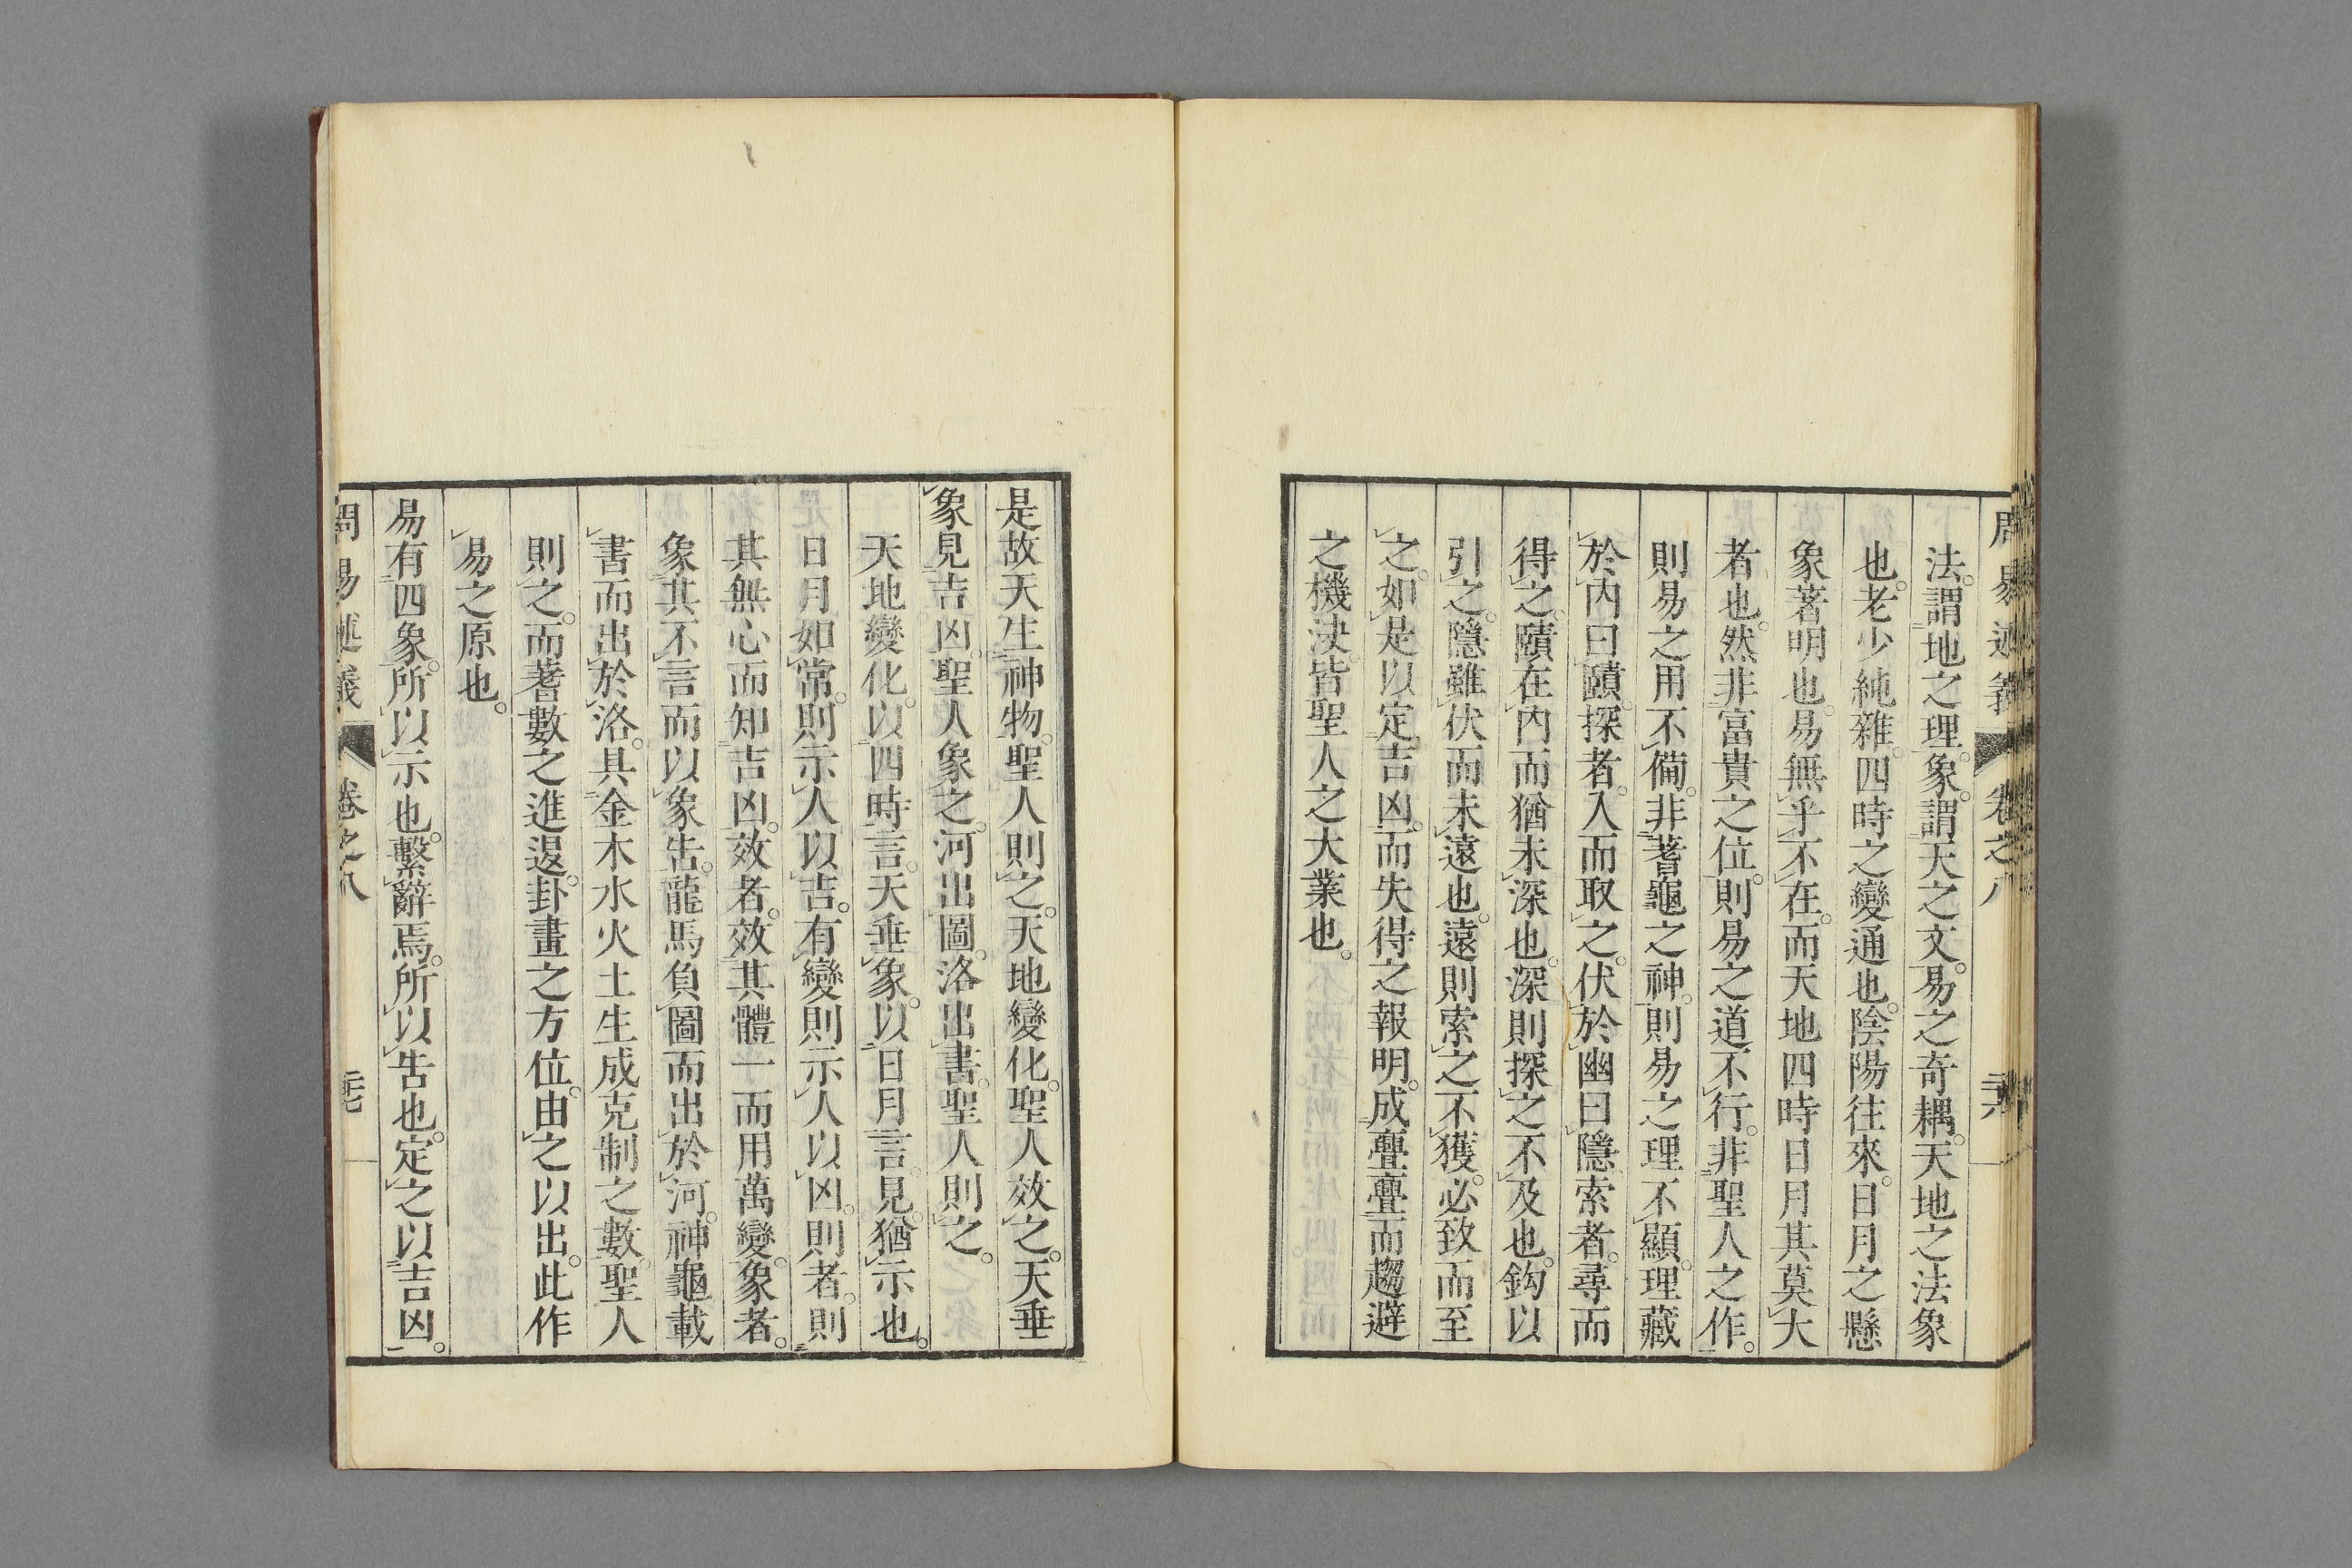 周易述義 卷之八 三六
法。謂地之理。象。謂天之文。易之奇耦。天地之法象
也。老少純雜。四時之變通也。陰陽往來。日月之懸
象著明也。易無乎不在。而天地四時日月其莫大
者也。然非富貴之位。則易之道不行。非聖人之作。
則易之用不備。非蓍龜之神。則易之理不顯。理藏
於內曰賾。探者。入而取之。伏於幽曰隱。索者。尋而
得之。賾在內而猶未深也。深則探之不及也。鈎以
引之。隱雖伏而未遠也。遠則索之不獲。必致而至
之。如是以定吉凶。而失得之報明。成亹亹而趨避
之機決。皆聖人之大業也。
是故天生神物。聖人則之。天地變化。聖人效之。天垂
象見吉凶。聖人象之。河出圖。洛出書。聖人則之。
天地變化。以四時言。天垂象。以日月言。見。猶示也。
日月如常。則示人以吉。有變則示人以凶。則者。則
其無心而知吉凶。效者。效其體一而用萬變。象者。
象其不言而以象告。龍馬負圖而出於河。神龜載
書而出於洛。具金木水火土生成克制之數。聖人
則之。而蓍數之進退。卦畫之方位。由之以出。此作
易之原也。
易有四象。所以示也。繫辭焉。所以告也。定之以吉凶。
周易述義 卷之八 三七